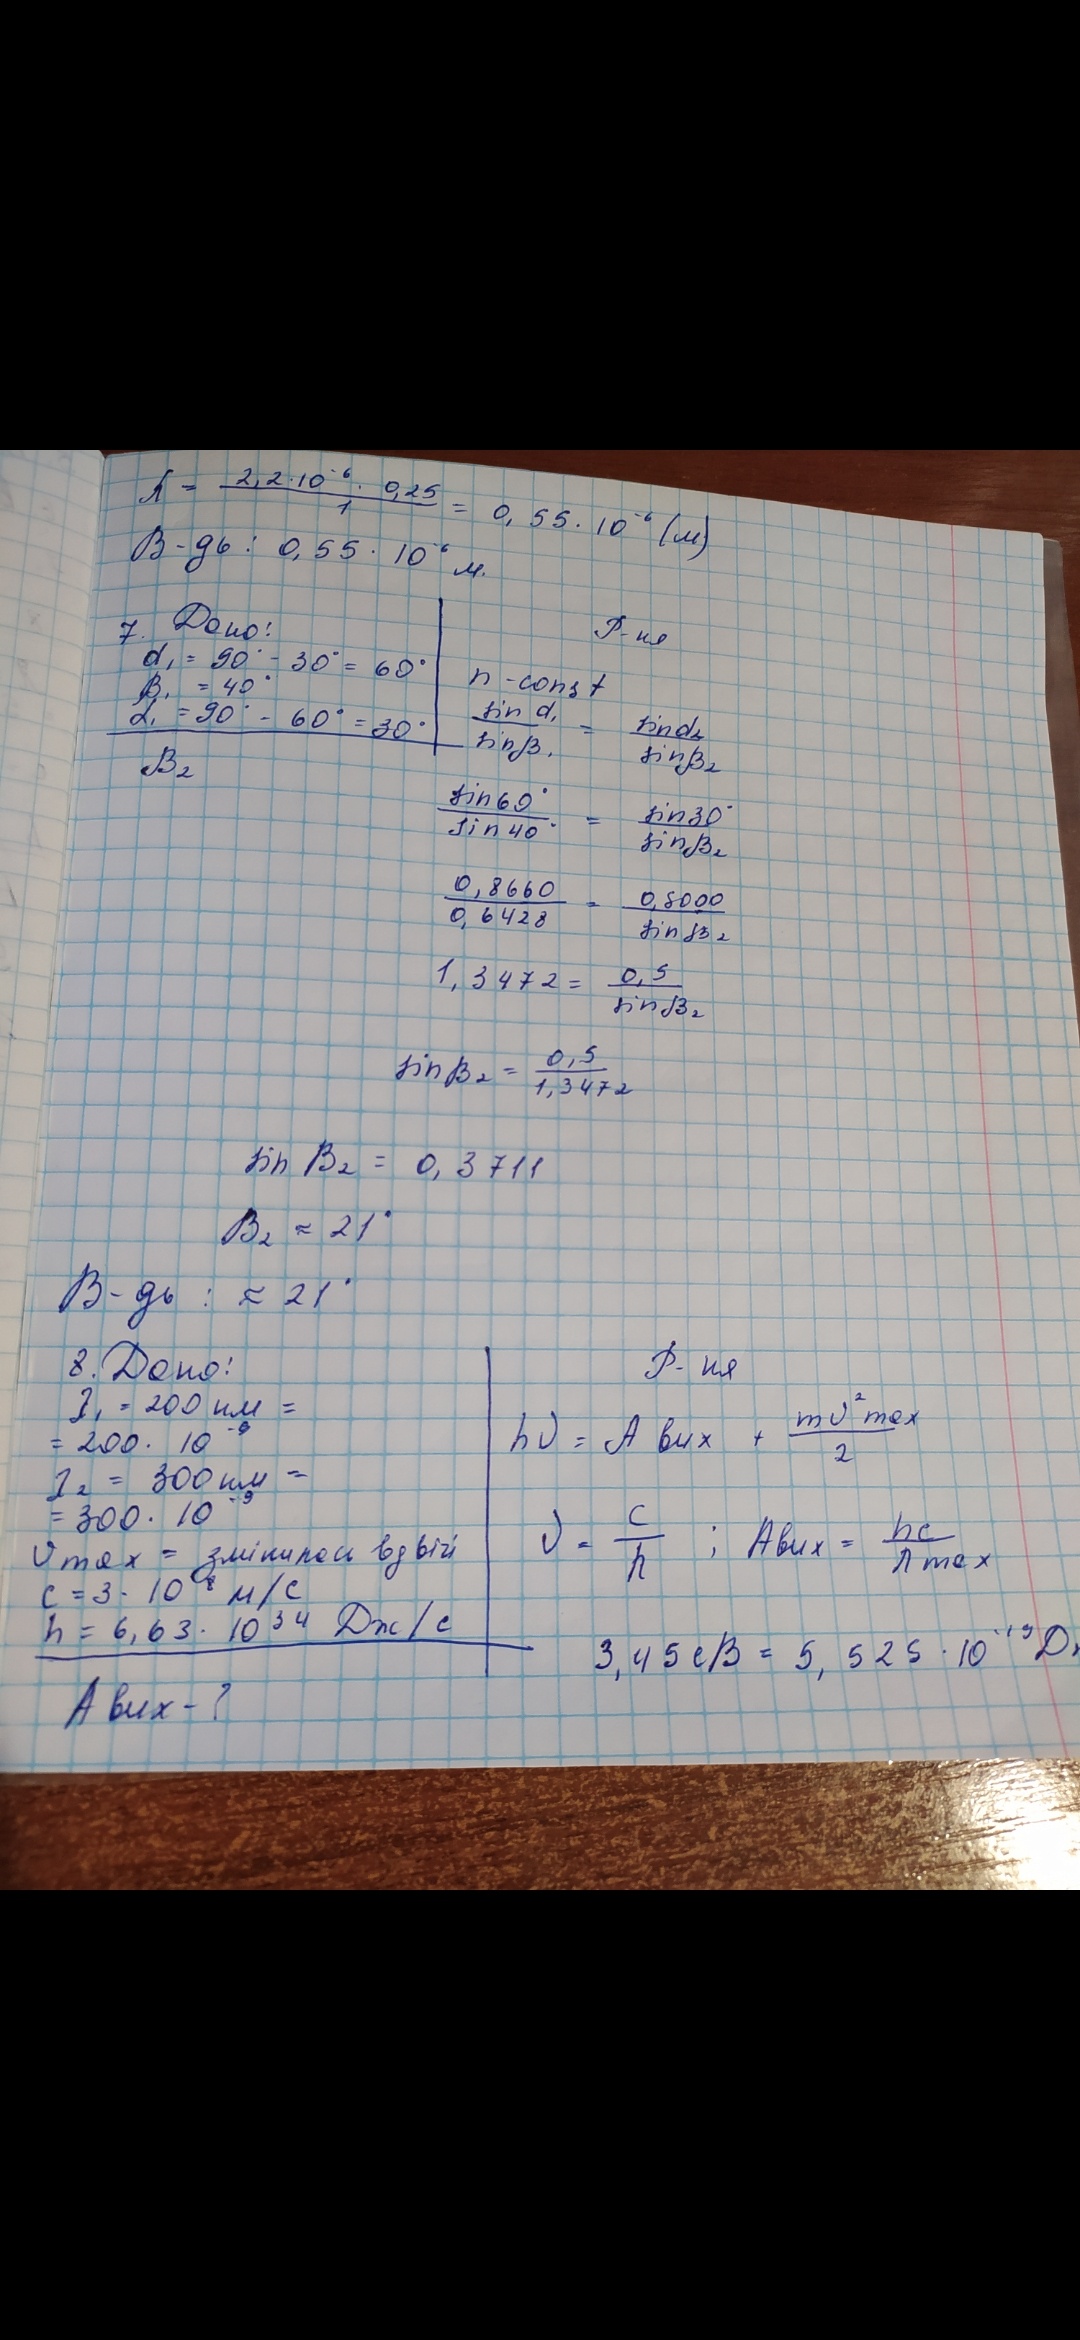 λ = 2,2·10⁻⁶ · 0,25 / 1 = 0,55·10⁻⁶ (м)
В-дь: 0,55·10⁻⁶ м.
7. Дано:
α₁ = 90° - 30° = 60°
β₁ = 40°
α₁ = 90° - 60° = 30°
β₂
Р-ня
n - const
sin α₁ / sin β₁ = sin α₂ / sin β₂
sin 60° / sin 40° = sin 30° / sin β₂
0,8660 / 0,6428 = 0,5000 / sin β₂
1,3472 = 0,5 / sin β₂
sin β₂ = 0,5 / 1,3472
sin β₂ = 0,3711
β₂ ≈ 21°
В-дь: ≈ 21°
8. Дано:
λ₁ = 200 нм =
= 200 · 10⁻⁹
λ₂ = 300 нм =
= 300 · 10⁻⁹
υmax = змінилась вдвій
c = 3 · 10⁸ м/с
h = 6,63 · 10³⁴ Дж/с
А вих - ?
Р-ня
hν = А вих + mυ²max / 2
ν = c / λ ; Авих = hc / λ max
3,45 еВ = 5,525 · 10⁻¹⁹ Д